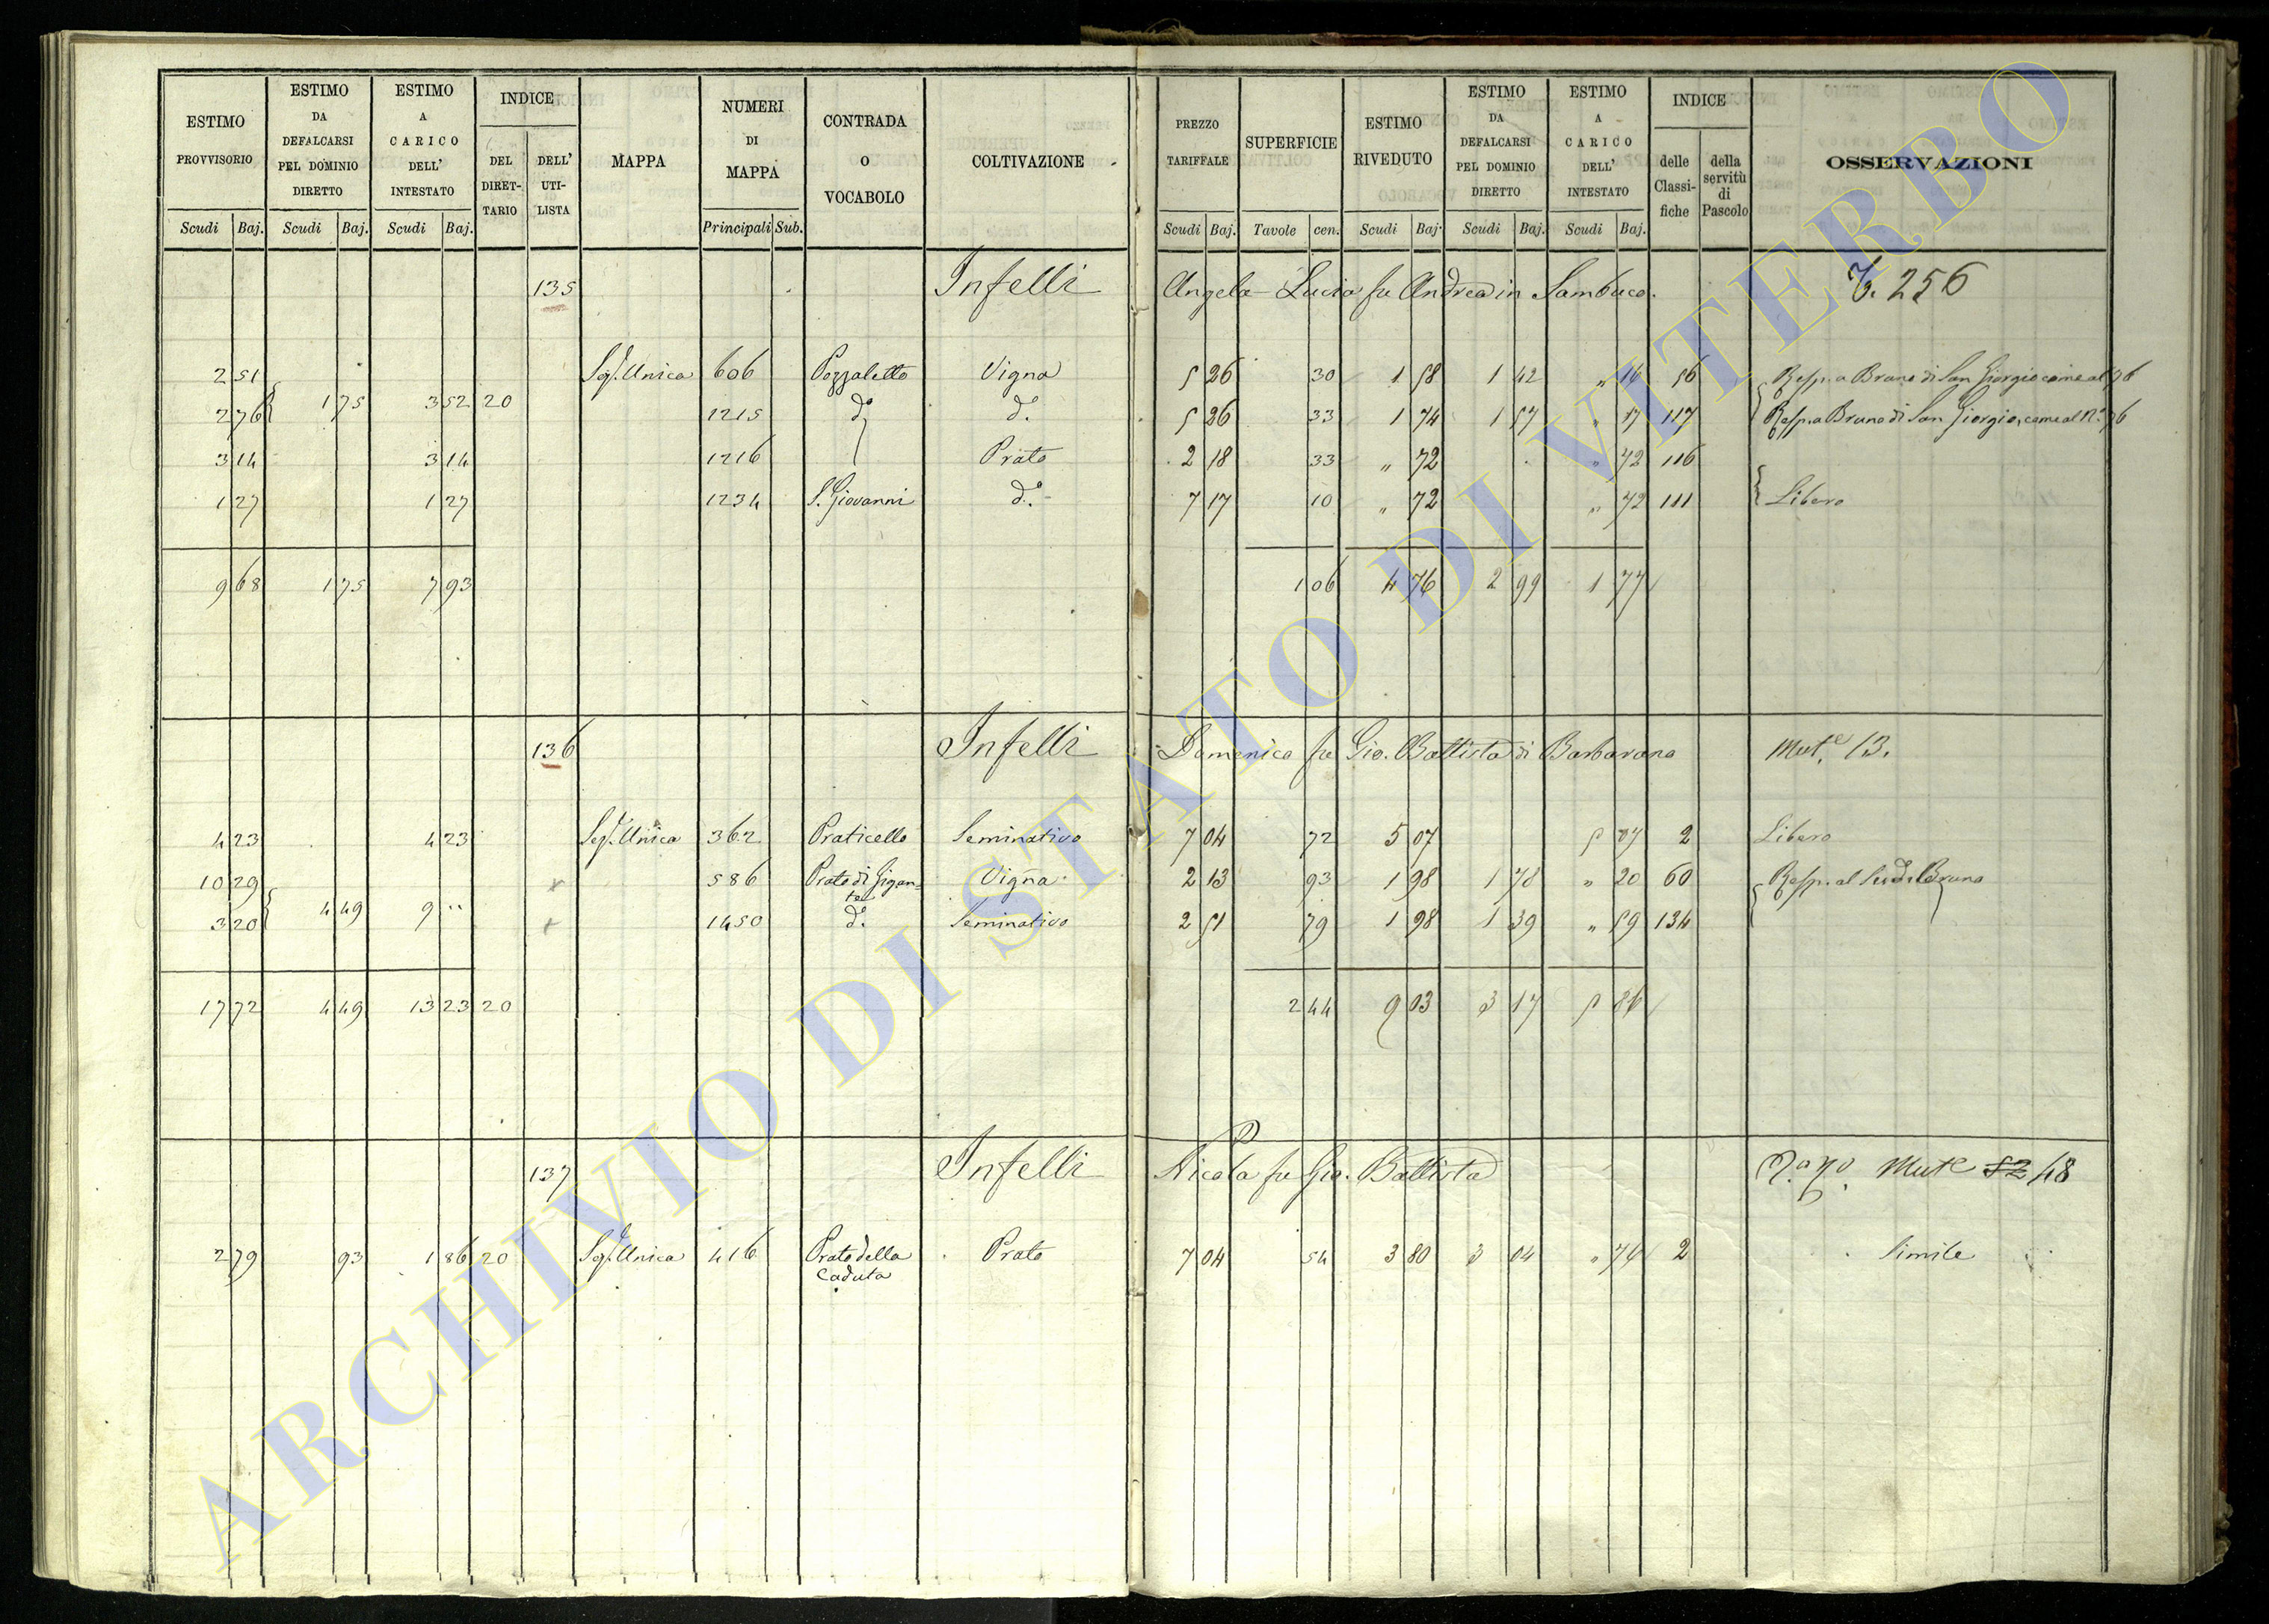 ESTIMO PROVVISORIO
ESTIMO DA DEFALCARSI PEL DOMINIO DIRETTO
ESTIMO A CARICO DELL' INTESTATO
INDICE
DEL DIRETTARIO
DELL' UTILISTA
MAPPA
NUMERI DI MAPPA
CONTRADA O VOCABOLO
COLTIVAZIONE
PREZZO TARIFFALE
SUPERFICIE
ESTIMO RIVEDUTO
ESTIMO DA DEFALCARSI PEL DOMINIO DIRETTO
ESTIMO A CARICO DELL' INTESTATO
INDICE
delle Classifiche
della servitù di Pascolo
OSSERVAZIONI
Scudi Baj. Scudi Baj. Scudi Baj. Principali Sub. Scudi Baj. Tavole cen. Scudi Baj. Scudi Baj. Scudi Baj.
135 Infelli Angela Lucia fu Andrea in Sambuco. 256
2 51 Sez. Unica 606 Pozzaletto Vigna 5 26 30 1 58 1 42 " 16 56 Resp. a Bruno di San Giorgio come al 76
1 75 3 52 20
2 76 1215 do do 5 26 33 1 74 1 57 " 17 117 Resp. a Bruno di San Giorgio, come al No 76
3 14 3 14 1216 Prato 2 18 33 " 72 " 72 116
1 27 1 27 1234 S. Giovanni do 7 17 10 " 72 " 72 111 Libero
9 68 1 75 7 93 1 06 4 76 2 99 1 77
136 Infelli Domenico fu Gio. Battista di Barbarano Mute 13.
4 23 4 23 Sez. Unica 362 Praticello Seminativo 7 04 72 5 07 5 07 2 Libero
10 29 586 Prato di Gigante Vigna 2 13 93 1 98 1 78 " 20 60 Resp. al Bruno
4 49 9 "
3 20 1450 do Seminativo 2 51 79 1 98 1 39 " 59 134
17 72 4 49 13 23 20 2 44 9 03 3 17 5 86
137 Infelli Nicola fu Gio. Battista Mute 52 48
2 79 93 1 86 20 Sez. Unica 416 Prato della Caduta Prato 7 04 54 3 80 3 04 " 76 2 Simile
ARCHIVIO DI STATO DI VITERBO